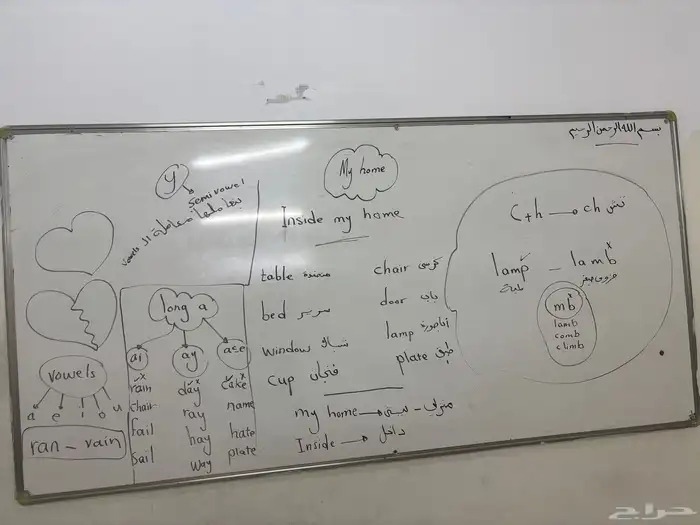 بسم الله الرحمن الرحيم
y
semi vowel
نعاملها معاملة الـ vowels
My home
Inside my home
table منضدة
chair كرسي
bed سرير
door باب
window شباك
lamp
cup فنجان
plate طبق
my home → بيتي - منزلي
Inside → داخل
C+h → ch تش
lamp - lamb
لمبة
خروف صغير
mb
lamb
comb
climb
long a
ai
ay
a-e
rain day cake
chair ray name
fail hay hate
sail way plate
vowels
a e i o u
ran - rain
حراج